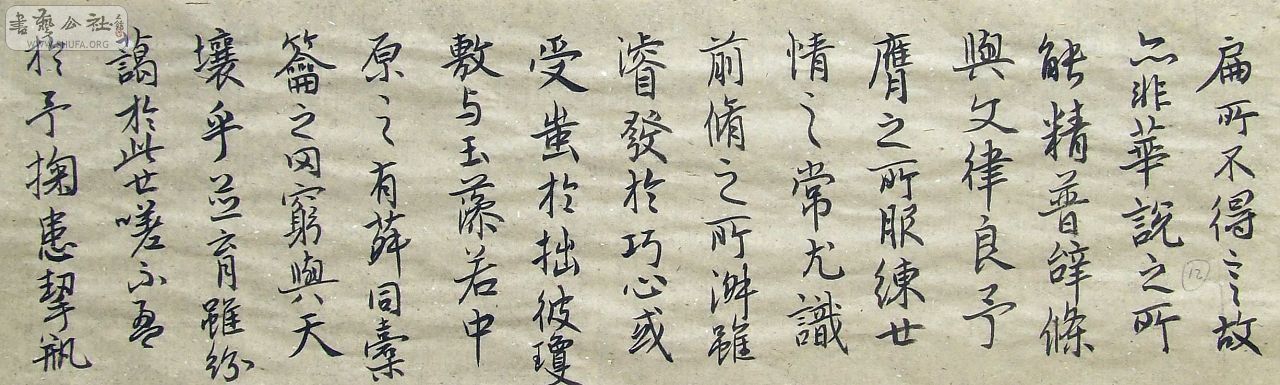 扁所不得言故
亦非華說之所
能精普辭條
與文律良予
膺之所服練世
情之常尤識
前脩之所淑雖
濬發於巧心或
受蚩於拙彼瓊
敷与玉藻若中
原之有菽同橐
籥之罔窮與天
壤乎並育雖紛
藹於此世嗟不盈
於予掬患挈瓶
12
書藝公社
WWW.SHUFA.ORG